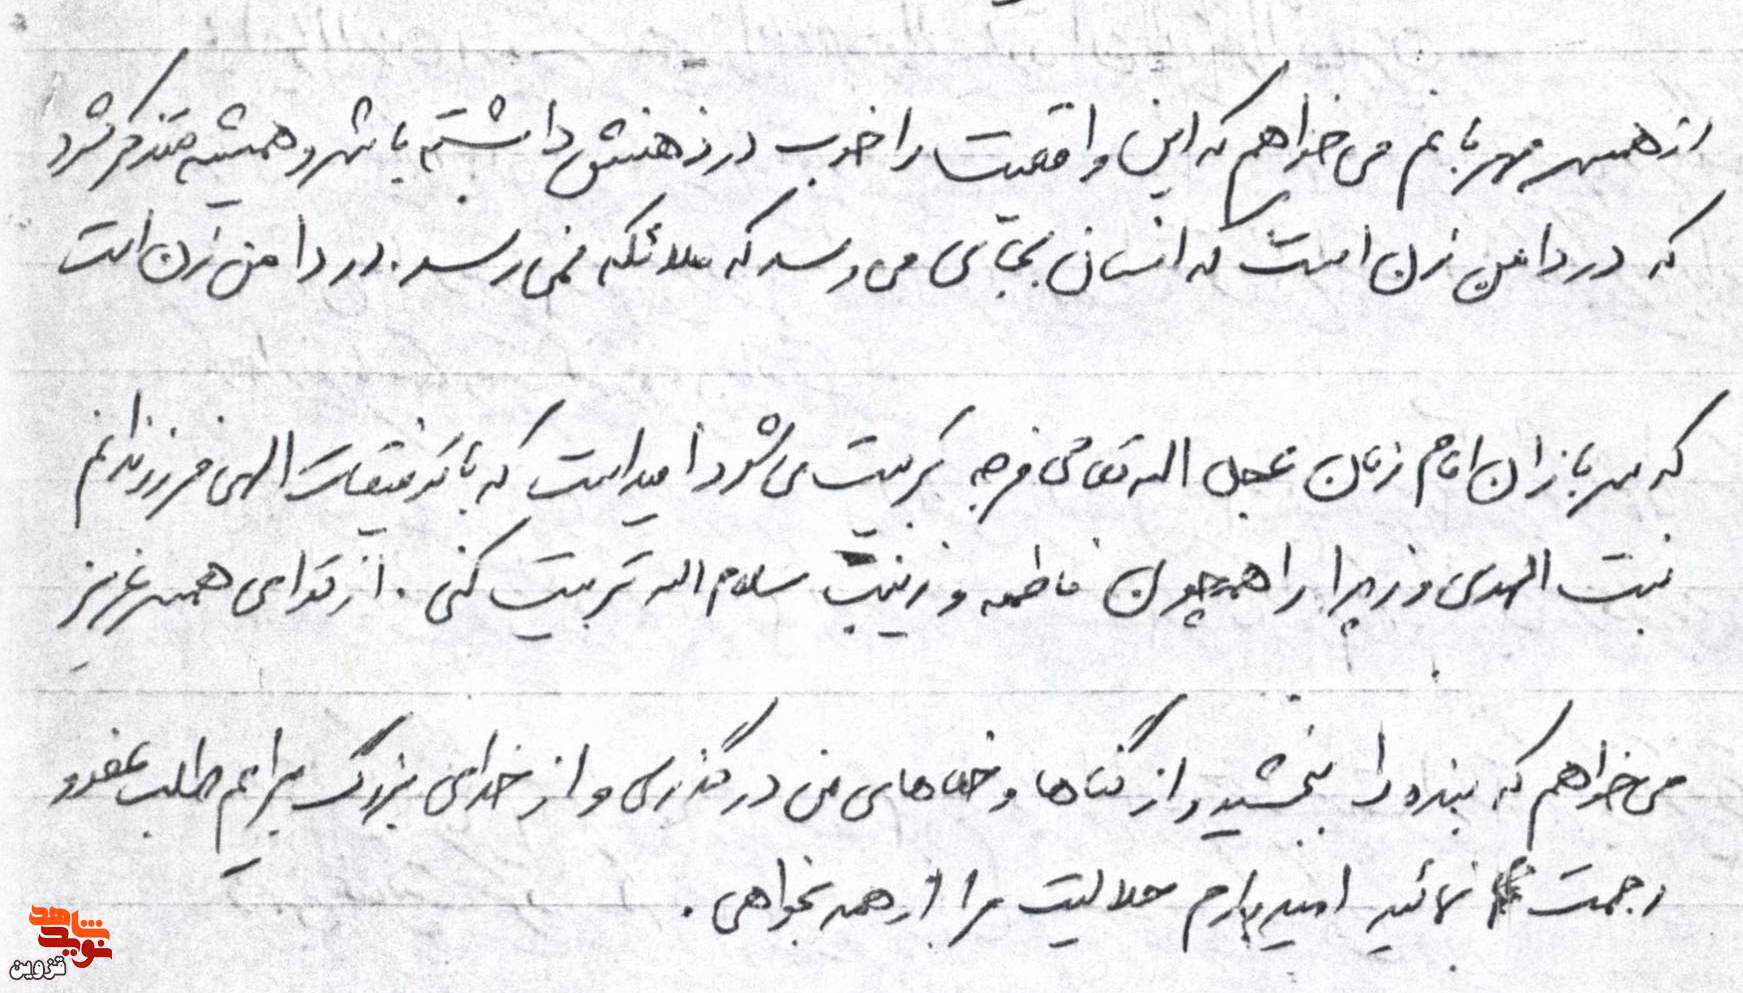 از همسر مهربانم می‌خواهم که این واقعیت را خوب در ذهنش داشته باشد و همیشه متذکر شود
که در دامن زن است که انسان بجایی می‌رسد که ملائکه نمی‌رسد. در دامن زن است
که سربازان امام زمان عجل الله تعالی فرجه تربیت می‌شود امید است که با توفیقات الهی فرزندانم
بنت الهدی و زهرا را همچون فاطمه و زینب سلام الله تربیت کنی. از تو ای همسر عزیز
می‌خواهم که بنده را ببخشید و از گناها و خطاهای من درگذری و از خدای بزرگ برایم طلب عفو و
رحمت نمائید امیدوارم حلالیت مرا از همه بخواهی.
شاهد
نوید
قزوین